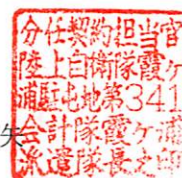 分任契約担当官
陸上自衛隊霞ヶ
浦駐屯地第341
会計隊霞ヶ浦
派遣隊長之印
矢